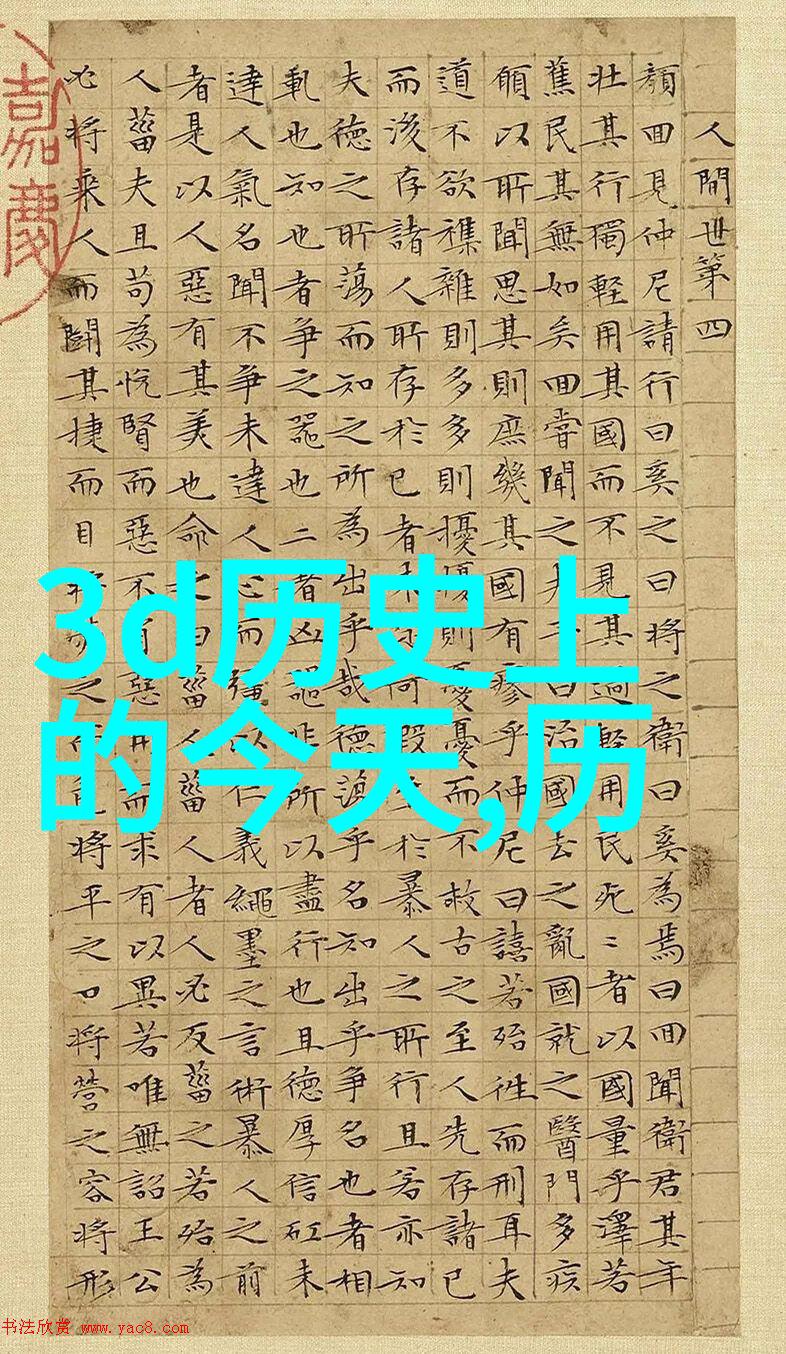 人間世第四
顔回見仲尼請行曰奚之曰將之衛曰奚為焉曰回聞衛君其年
壯其行獨輕用其國而不見其過輕用民死〻者以國量乎澤若
蕉民其無如矣回嘗聞之夫子曰治國去之亂國就之醫門多疾
願以所聞思其則庶幾其國有瘳乎仲尼曰譆若殆往而刑耳夫
道不欲襍雜則多多則擾擾則憂憂而不救古之至人先存諸已
而後存諸人所存於已者未定何暇至於暴人之所行且若亦知
夫德之所蕩而知之所為出乎哉德蕩乎名知出乎爭名也者相
軋也知也者爭之器也二者凶器非所以盡行也且德厚信矼未
達人氣名聞不爭未達人心而彊以仁義繩墨之言術暴人之前
者是以人惡有其美也命之曰菑人菑人者人必反菑之若殆為
人菑夫且苟為悅賢而惡不肖惡用而求有以異若唯無詔王公
必將乘人而鬭其捷而目將熒之而色將平之口將營之容將形
嘉慶
3d历史上
的今天,历
书法欣赏 www.yac8.com